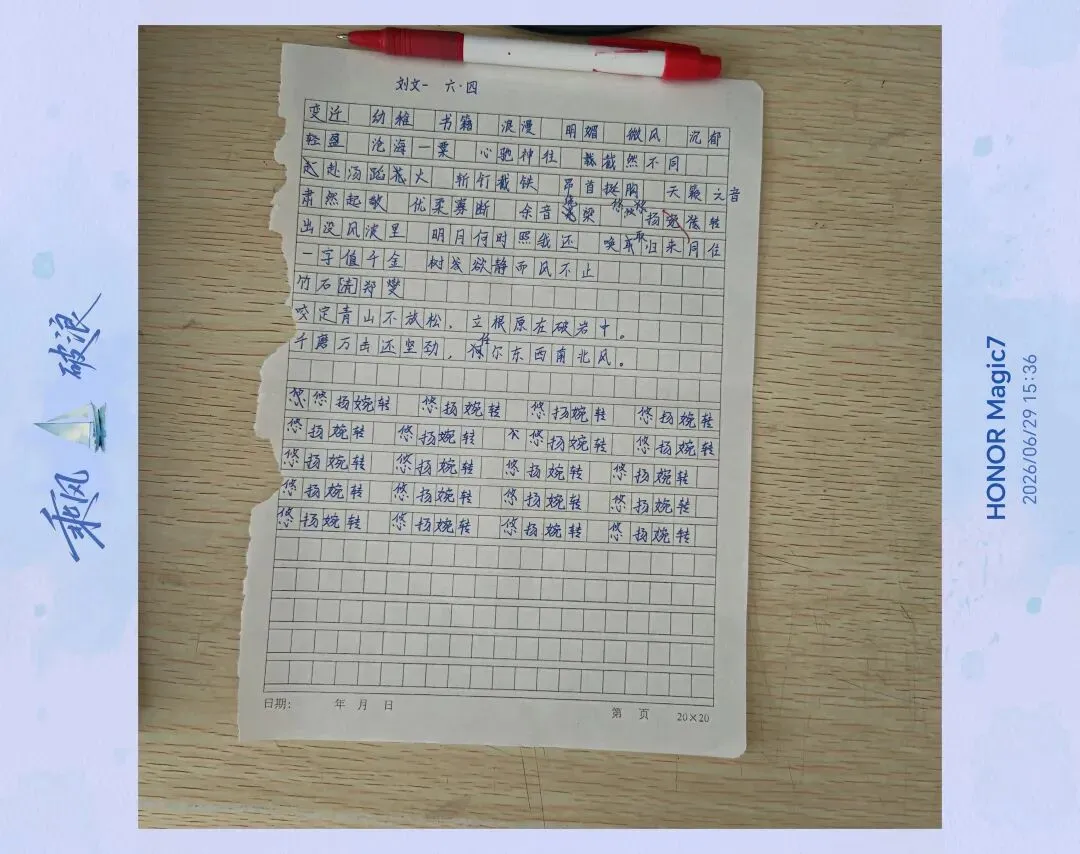 刘文一 六·四
变近 幼稚 书籍 浪漫 明媚 微风 沉郁
轻盈 沧海一粟 心驰神往 截然不同
赴汤蹈火 斩钉截铁 昂首挺胸 天籁之音
肃然起敬 优柔寡断 余音绕梁 悠扬婉转
出没风波里 明月何时照我还 唤取归来同住
一字值千金 树欲静而风不止
竹石[清]郑燮
咬定青山不放松，立根原在破岩中。
千磨万击还坚劲，任尔东西南北风。
悠悠扬婉转 悠扬婉转 悠扬婉转 悠扬婉转
悠扬婉转 悠扬婉转 悠扬婉转 悠扬婉转
悠扬婉转 悠扬婉转 悠扬婉转 悠扬婉转
悠扬婉转 悠扬婉转 悠扬婉转 悠扬婉转
悠扬婉转 悠扬婉转 悠扬婉转 悠扬婉转
日期： 年 月 日 第 页 20×20
乘风 破浪
HONOR Magic7
2026/06/29 15:36